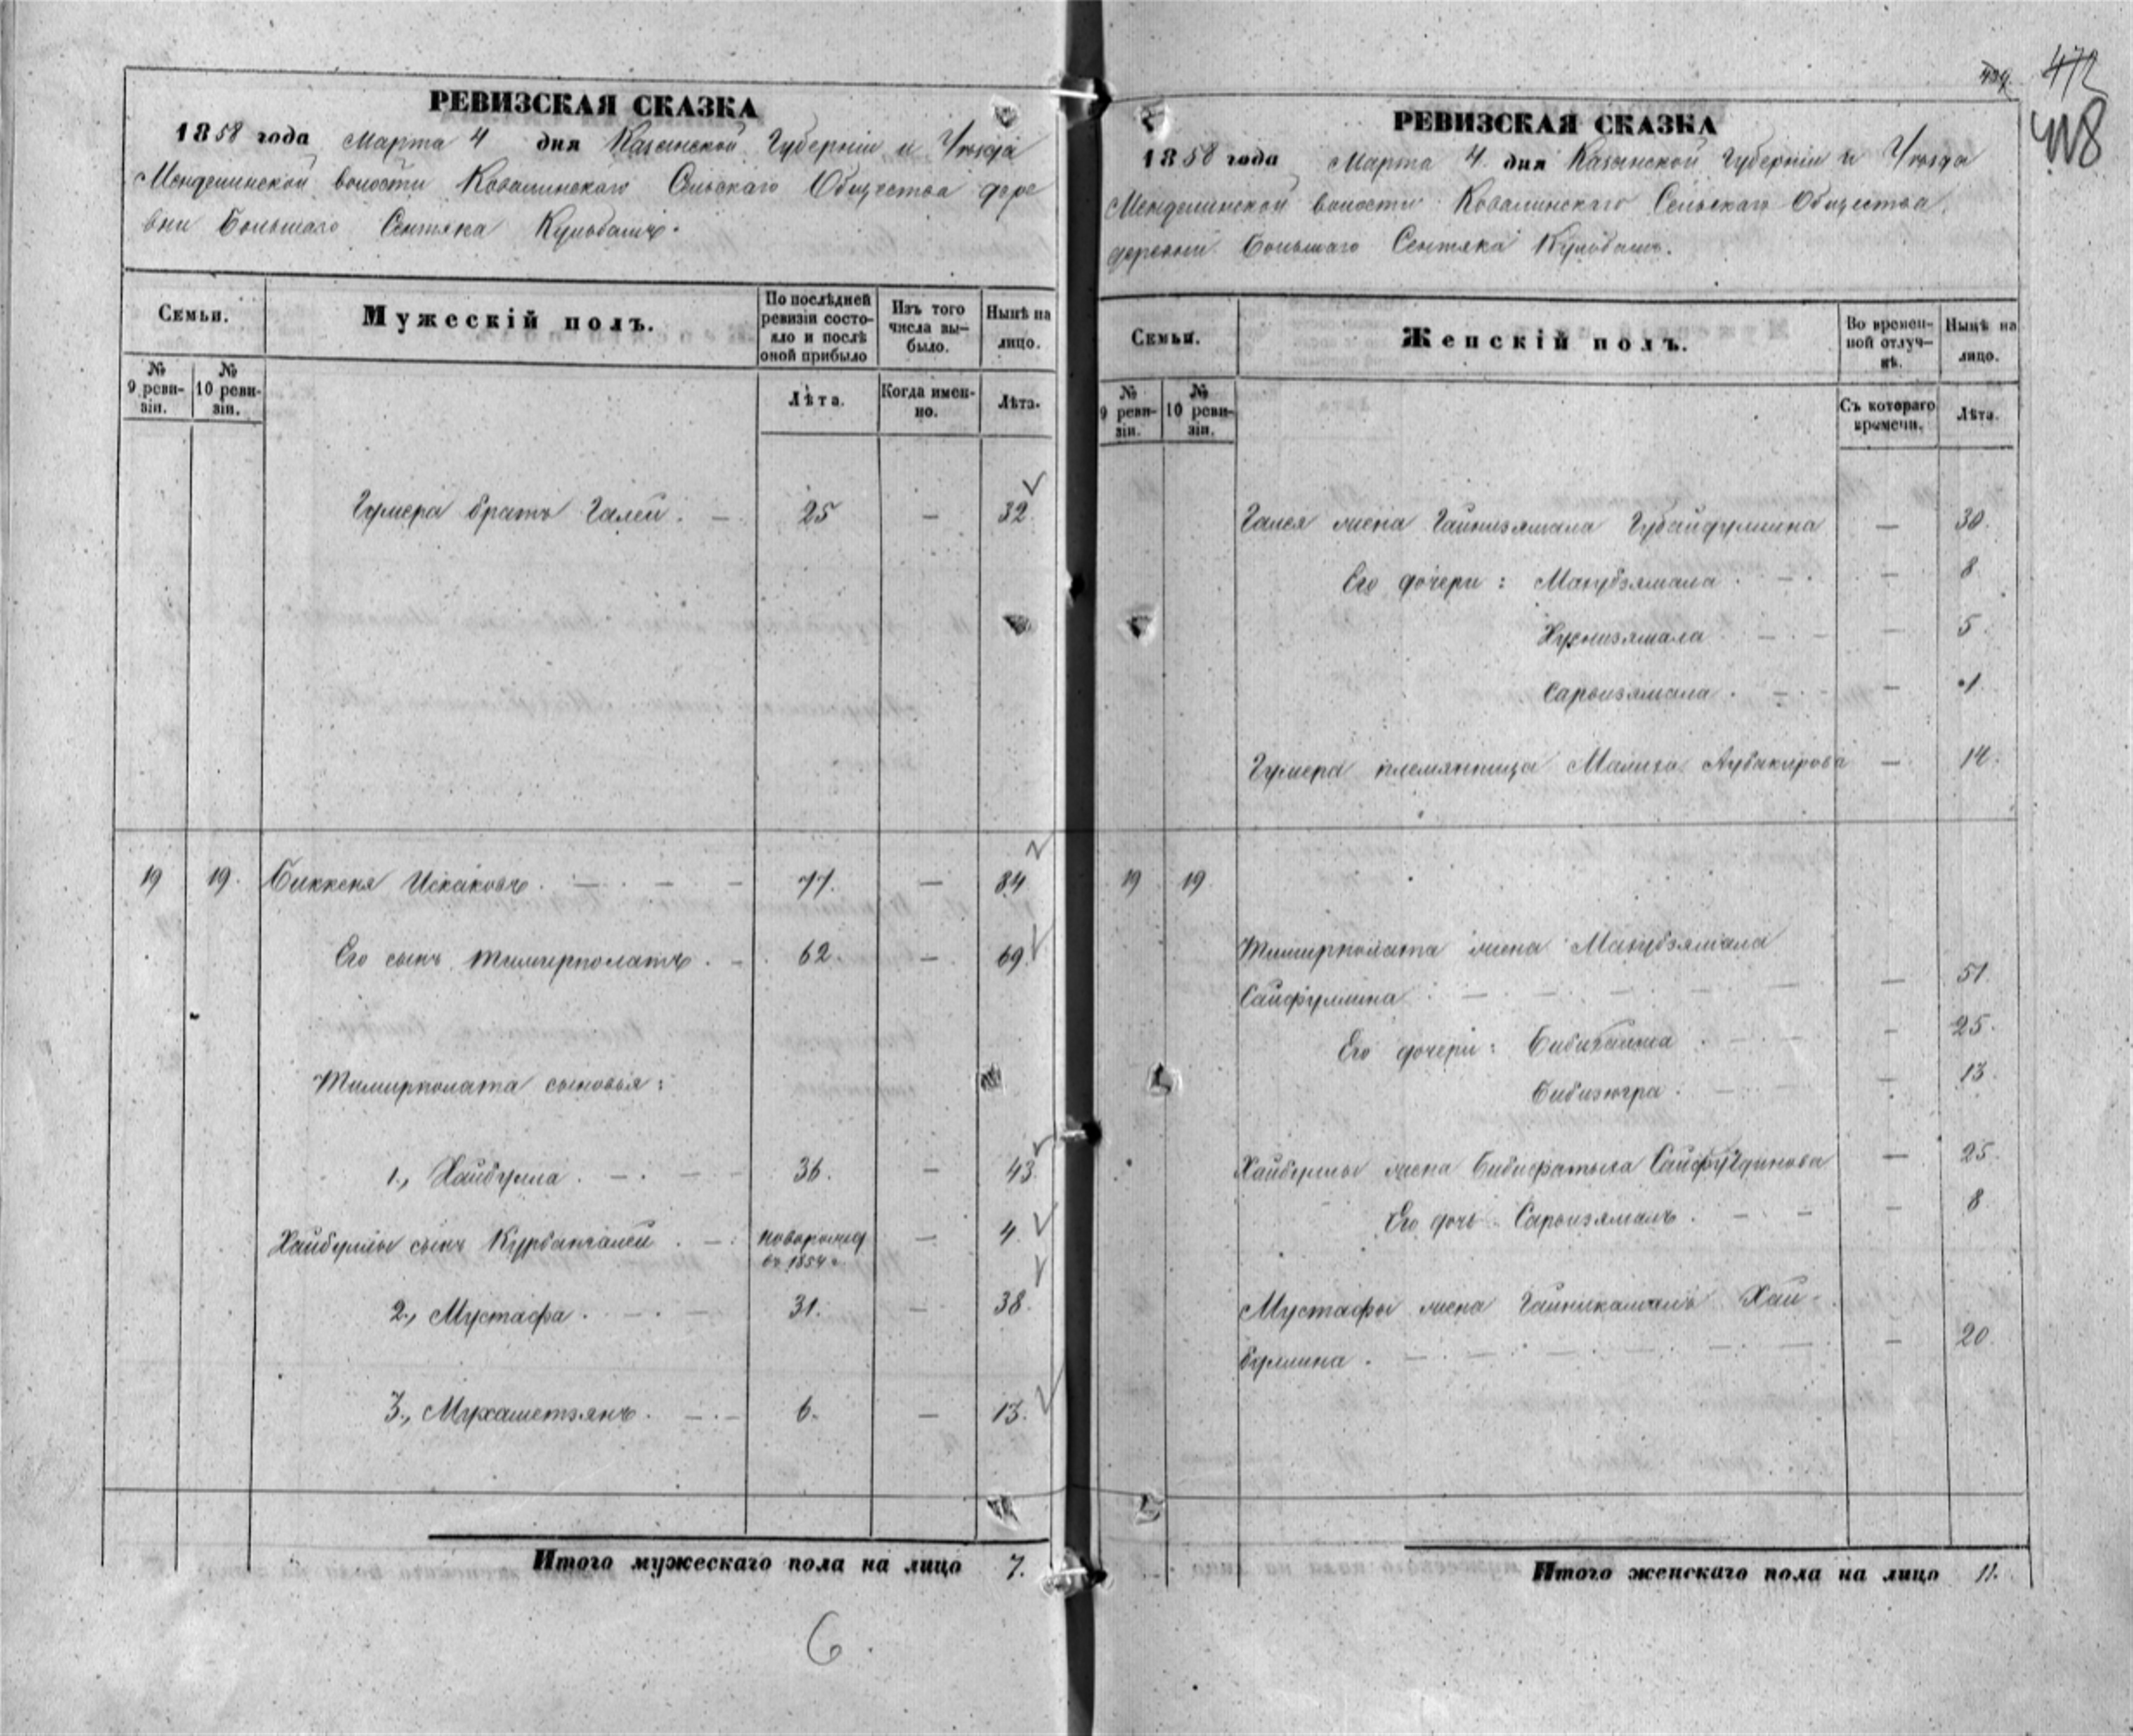 РЕВИЗСКАЯ СКАЗКА
1858 года Марта 4 дня Казанской Губерніи и Уѣзда
Менделинской волости Ковалинскаго Сельскаго Общества дере
вни Большаго Сентяка Кульбашъ.
Семьи.
Мужескій полъ.
По послѣдней ревизіи состояло и послѣ оной прибыло
Изъ того числа выбыло.
Нынѣ на лицо.
№ 9 ревизіи.
№ 10 ревизіи.
Лѣта.
Когда именно.
Лѣта.
Гумера братъ Галей. — 25 — 32
19 19. Биккеня Искаковъ. — — — 77. — 84
Его сынъ Тимирполатъ. — 62. — 69.
Тимирполата сыновья:
1., Хайбулла. — — 36. — 43.
Хайбуллы сынъ Курбангалей. — новорожд — 4.
въ 1854 г.
2., Мустафа. — — 31. — 38.
3., Мухаметзянъ. — — 6. — 13.
Итого мужескаго пола на лицо 7.
6.
472
418
РЕВИЗСКАЯ СКАЗКА
1858 года Марта 4. дня Казанской Губерніи и Уѣзда
Менделинской волости Ковалинскаго Сельскаго Общества
деревни Большаго Сентяка Кульбашъ.
Семьи.
Женскій полъ.
Во временной отлучкѣ.
Нынѣ на лицо.
№ 9 ревизіи.
№ 10 ревизіи.
Съ котораго времени.
Лѣта.
Галея жена Гайнизямала Губайдуллина — 30.
Его дочери: Магубзямала. — — 8
Хуснизямала — — 5.
Сарвизямала. — — 1.
Гумера племянница Малика Аубакирова — 14.
19 19
Тимирполата жена Магубзямала
Сайфуллина. — — — — — — 51.
Его дочери: Бибигайша. — — 25.
Бибизюгра. — — 13.
Хайбуллы жена Бибифатыха Сайфутдинова — 25.
Его дочь Сарвизямалъ. — — — 8
Мустафы жена Гайникамалъ Хай-
буллина. — — — — — — — 20.
Итого женскаго пола на лицо 11.